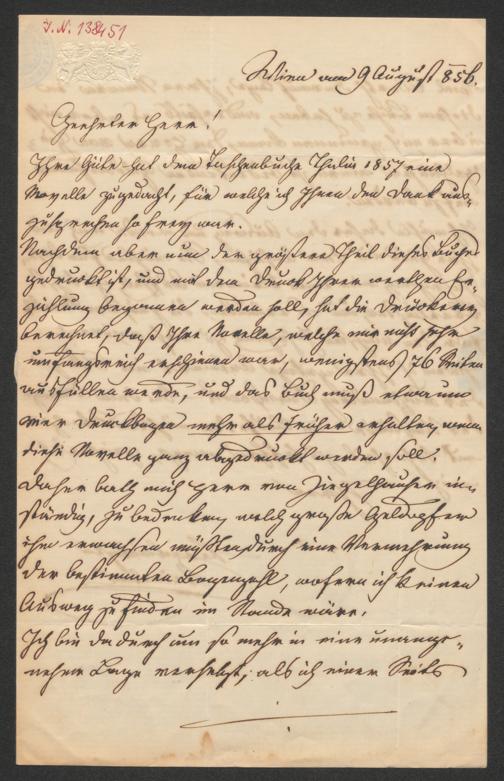 I. N. 138451
Wien am 9 August 856.
Geehrter Herr!
Ihre Güte hat dem Taschenbuche Thalia 1857 eine
Novelle zugedacht, für welche ich Ihnen den Dank aus-
zusprechen so frey war.
Nachdem aber nun der größere Theil dieses Buches
gedruckt ist, und mit dem Druck Ihrer werthen Er-
zählung begonnen werden soll, hat die Druckerey
berechnet, daß Ihre Novelle, welche mir nicht sehr
umfangsreich erschienen war, wenigstens 76 Seiten
ausfüllen werde, und das Buch muß etwa um
vier Druckbogen mehr als früher erhalten, wenn
diese Novelle ganz abgedruckt werden soll.
Daher bath mich Herr von in-
ständig, zu bedenken, welch große Geldopfer
ihm erwachsen müßten durch eine Vermehrung
der bestimmten Bogenzahl, wofern ich keinen
Ausweg zu finden im Stande wäre.
Ich bin dadurch um so mehr in eine unange-
nehme Lage versetzt, als ich einer Seits